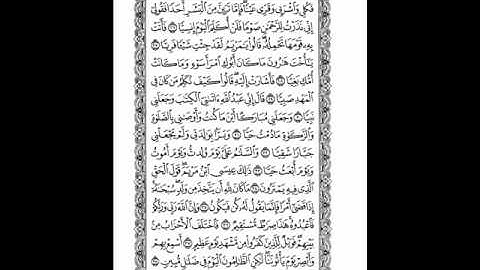 فَكُلِي وَاشْرَبِي وَقَرِّي عَيْنًا فَإِمَّا تَرَيِنَّ مِنَ الْبَشَرِ أَحَدًا فَقُولِي
إِنِّي نَذَرْتُ لِلرَّحْمَٰنِ صَوْمًا فَلَنْ أُكَلِّمَ الْيَوْمَ إِنسِيًّا ۝٢٦ فَأَتَتْ
بِهِ قَوْمَهَا تَحْمِلُهُ قَالُوا يَا مَرْيَمُ لَقَدْ جِئْتِ شَيْئًا فَرِيًّا ۝٢٧
يَا أُخْتَ هَارُونَ مَا كَانَ أَبُوكِ امْرَأَ سَوْءٍ وَمَا كَانَتْ
أُمُّكِ بَغِيًّا ۝٢٨ فَأَشَارَتْ إِلَيْهِ قَالُوا كَيْفَ نُكَلِّمُ مَن كَانَ فِي
الْمَهْدِ صَبِيًّا ۝٢٩ قَالَ إِنِّي عَبْدُ اللَّهِ آتَانِيَ الْكِتَابَ وَجَعَلَنِي
نَبِيًّا ۝٣٠ وَجَعَلَنِي مُبَارَكًا أَيْنَ مَا كُنتُ وَأَوْصَانِي بِالصَّلَاةِ
وَالزَّكَاةِ مَا دُمْتُ حَيًّا ۝٣١ وَبَرًّا بِوَالِدَتِي وَلَمْ يَجْعَلْنِي
جَبَّارًا شَقِيًّا ۝٣٢ وَالسَّلَامُ عَلَيَّ يَوْمَ وُلِدتُّ وَيَوْمَ أَمُوتُ
وَيَوْمَ أُبْعَثُ حَيًّا ۝٣٣ ذَٰلِكَ عِيسَى ابْنُ مَرْيَمَ قَوْلَ الْحَقِّ
الَّذِي فِيهِ يَمْتَرُونَ ۝٣٤ مَا كَانَ لِلَّهِ أَن يَتَّخِذَ مِن وَلَدٍ سُبْحَانَهُ
إِذَا قَضَىٰ أَمْرًا فَإِنَّمَا يَقُولُ لَهُ كُن فَيَكُونُ ۝٣٥ وَإِنَّ اللَّهَ رَبِّي وَرَبُّكُمْ
فَاعْبُدُوهُ هَٰذَا صِرَاطٌ مُّسْتَقِيمٌ ۝٣٦ فَاخْتَلَفَ الْأَحْزَابُ مِن
بَيْنِهِمْ فَوَيْلٌ لِّلَّذِينَ كَفَرُوا مِن مَّشْهَدِ يَوْمٍ عَظِيمٍ ۝٣٧ أَسْمِعْ بِهِمْ
وَأَبْصِرْ يَوْمَ يَأْتُونَنَا لَٰكِنِ الظَّالِمُونَ الْيَوْمَ فِي ضَلَالٍ مُّبِينٍ ۝٣٨